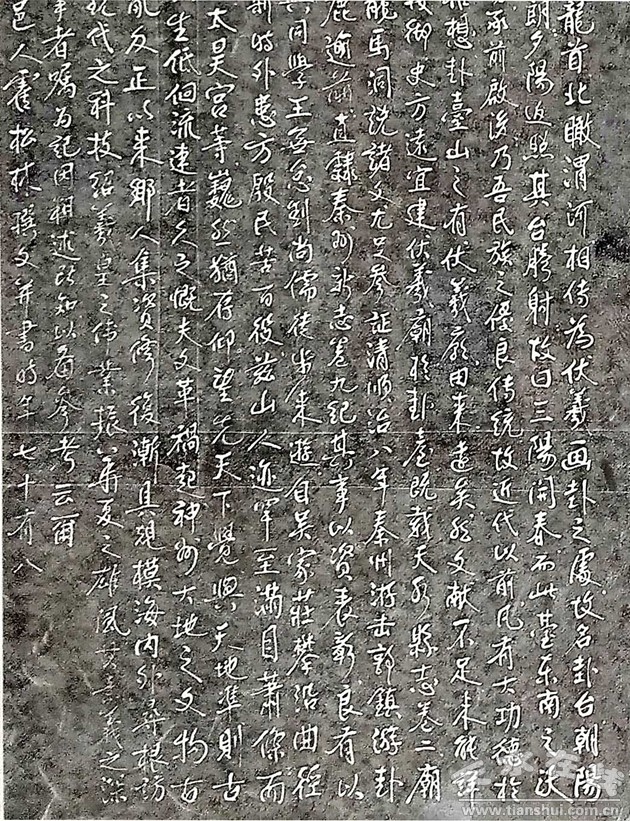 龍首北瞰渭河相传為伏羲画卦之處故名卦台朝陽
朗夕陽返照其台騰射故曰三陽開春而此臺东南之沃
承前啟後乃吾民族之優良传統故近代以前凡有大功德於
推想卦臺山之有伏羲廟由来遠矣然文献不足未能詳
御史方遠宜建伏羲廟於卦臺既载天水縣志卷二廟
龍馬洞説諸文尤足參証清順治八年秦州游击郭鎮游卦
直隸秦州新志卷九紀其事以資表彰良有以
同學王無怠劉尚儒徒步来遊自吴家莊攀沿曲徑
斯時外患方殷民苦百役兹山人迹罕至满目萧條而
太昊宫等巍然猶存仰望先天下覺與天地準則古
生低佪流連者久之慨夫文革禍起神州大地之文物古
亂反正以来鄉人集資修復漸具規模海内外尋根訪
现代之科技绍羲皇之伟業振華夏之雄風其意義之深
事者嘱為記因粗述所知以備參考云爾
邑人霍松林撰文并書時年七十有八
www.tianshui.com.cn